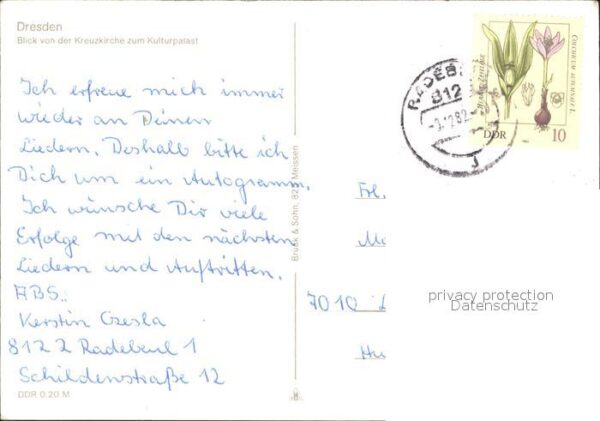 Dresden
Blick von der Kreuzkirche zum Kulturpalast
Ich erfreue mich immer
wieder an Deinen
Liedern. Deshalb bitte ich
Dich um ein Autogramm.
Ich wünsche Dir viele
Erfolge mit den nächsten
Liedern und Auftritten.
ABS.:
Kerstin Czesla
8122 Radebeul 1
Schildenstraße 12
DDR 0,20 M
Bruck & Sohn, Meissen
RADEB
812
DDR
10
Frl.
7010
privacy protection
Datenschutz